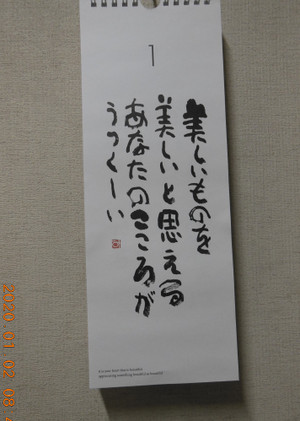 1
美しいものを
美しいと思える
あなたのこころが
うつくしい
2020.01.02